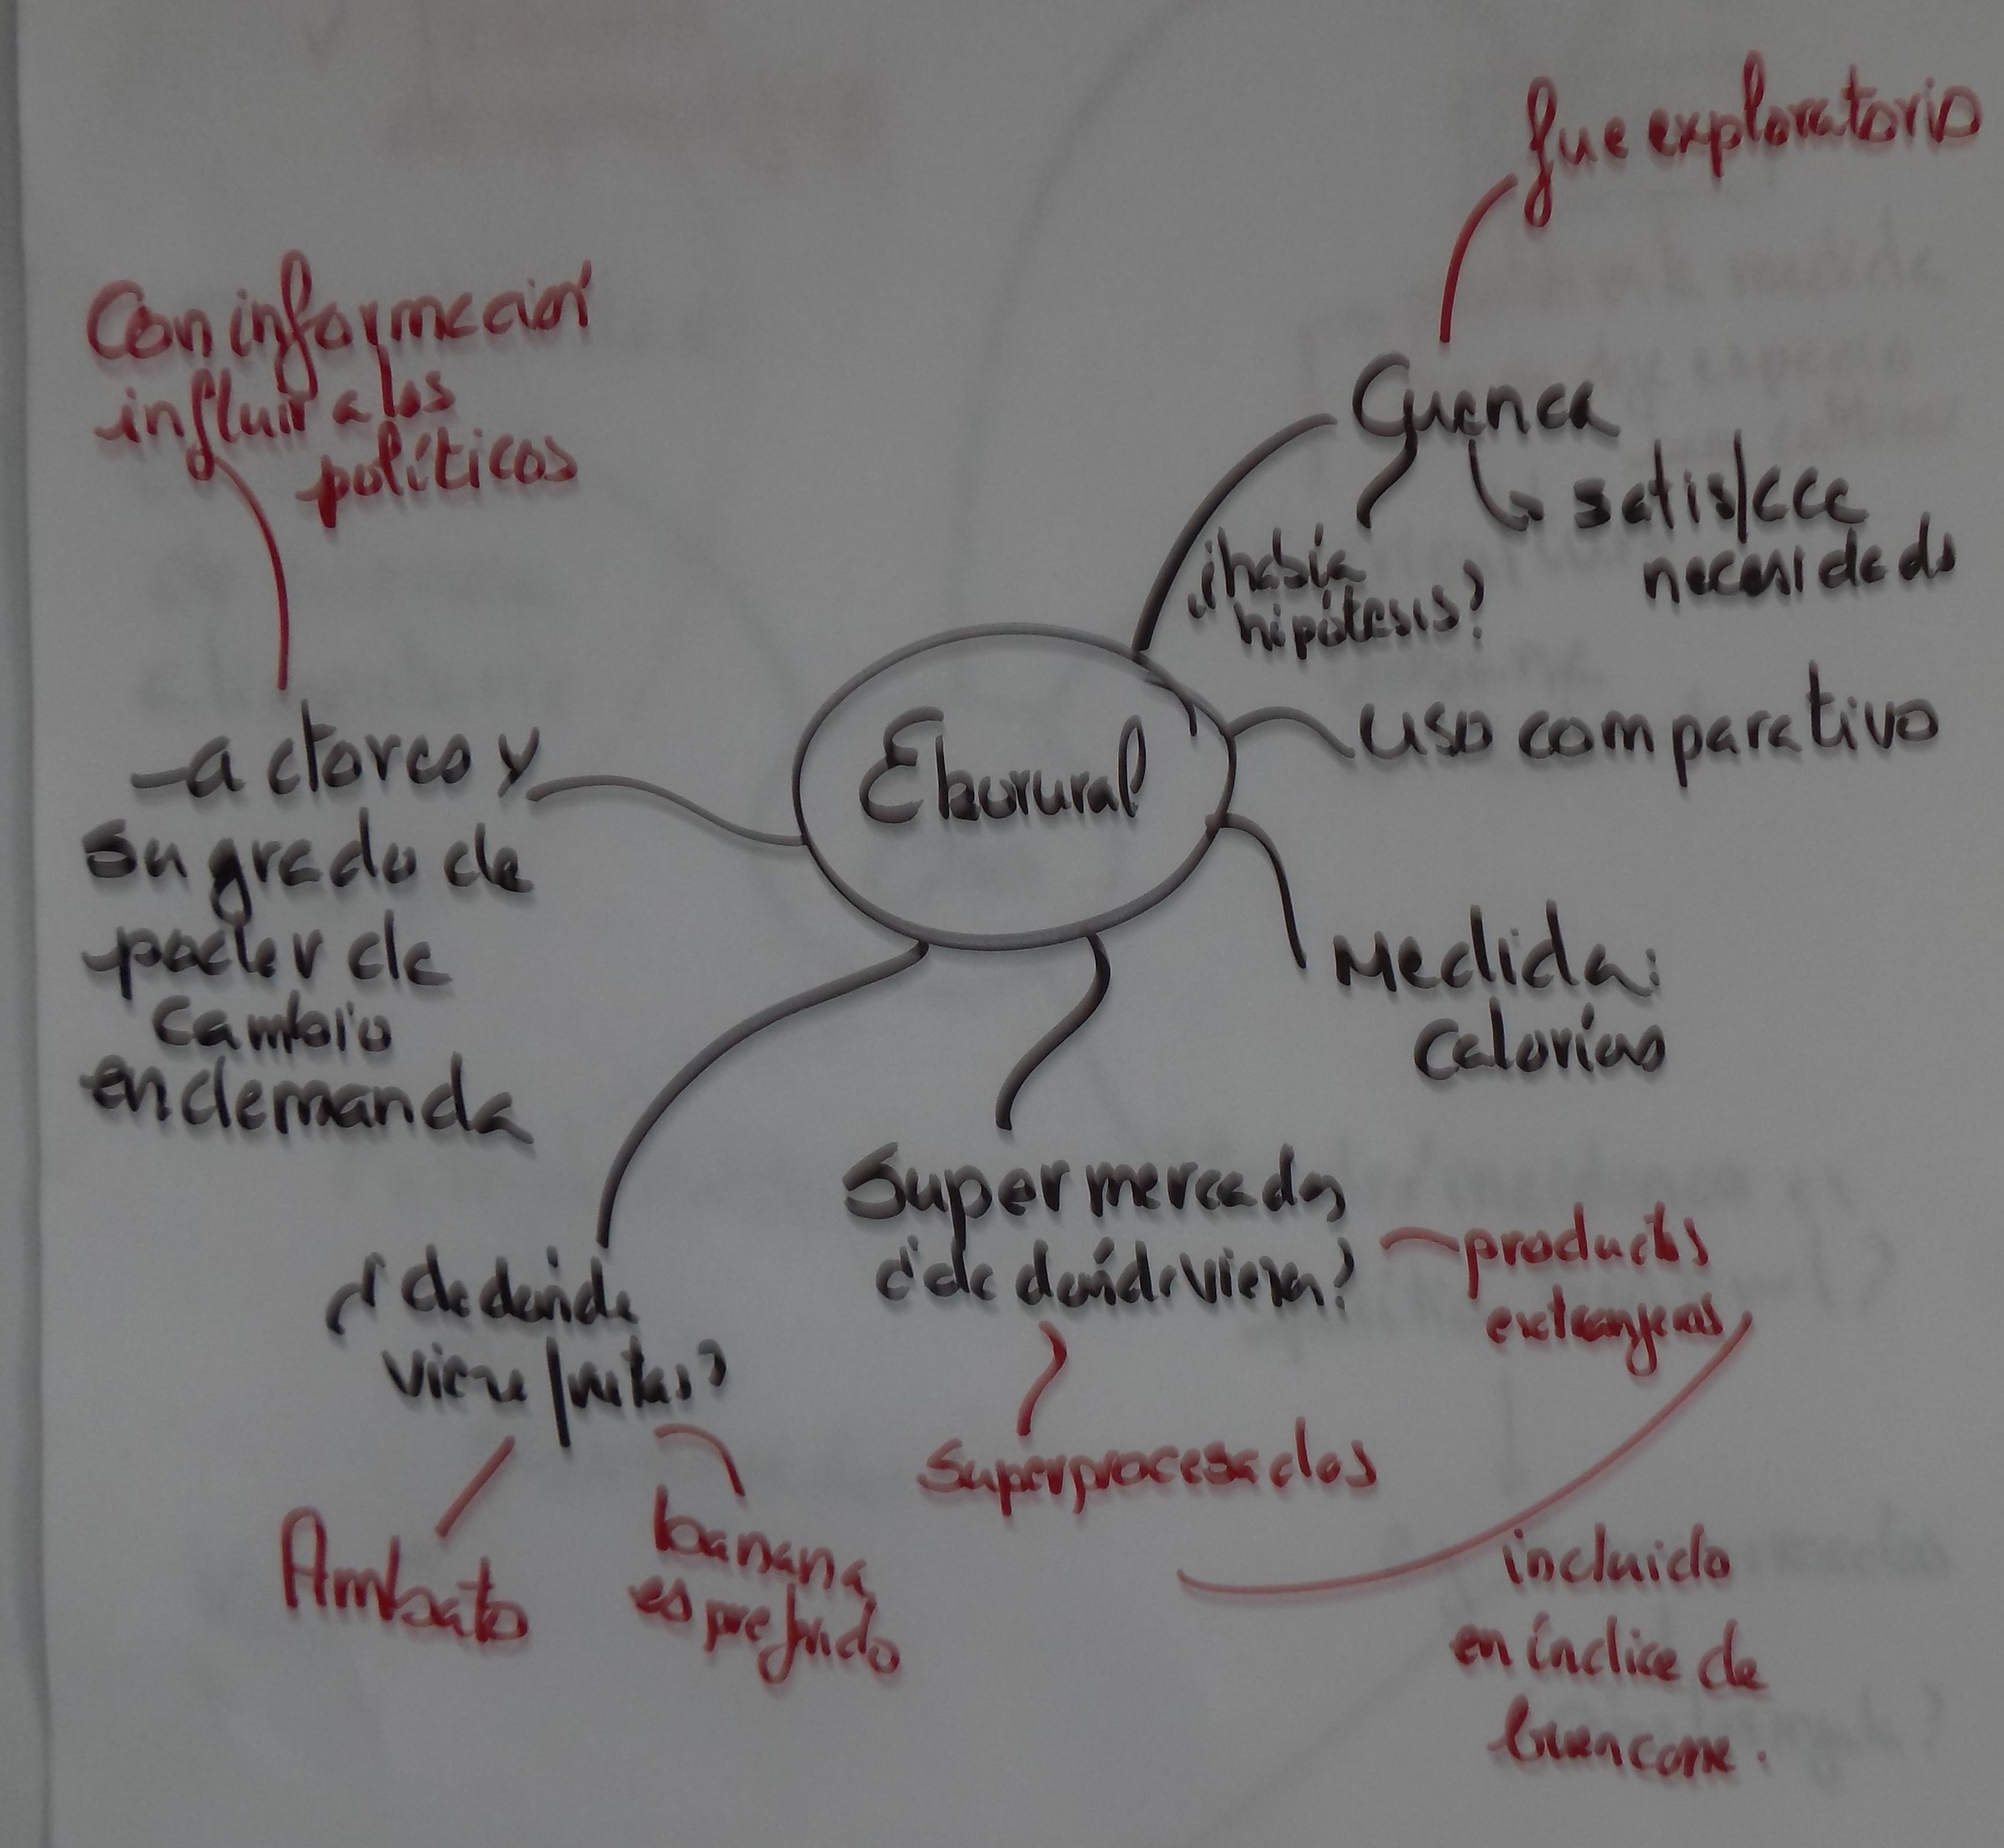 fue exploratorio
Cuenca
satisface
necesidads
¿había
hipótesis?
uso comparativo
Medida:
Calorías
Ekorural
Con información
influir a los
políticos
- actores y
su grado de
poder de
cambio
en demanda
Supermercados
¿de dónde vienen?
productos
extranjeros
incluido
en índice de
buen come.
Superprocesados
¿de dónde
viene frutas?
Ambato
banana
es preferido